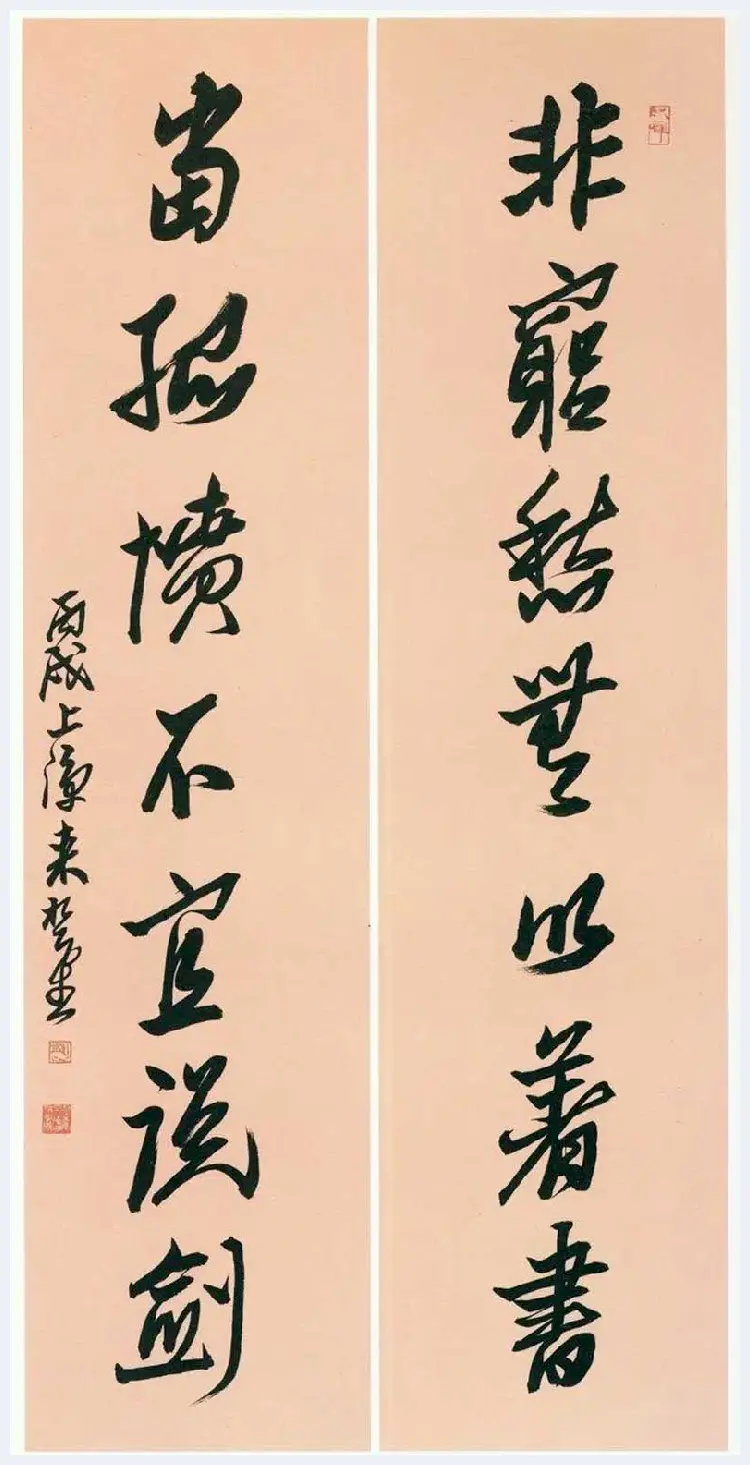 非竆愁無以著書
當孤憤不宜說劍
丙戌上 来楚生